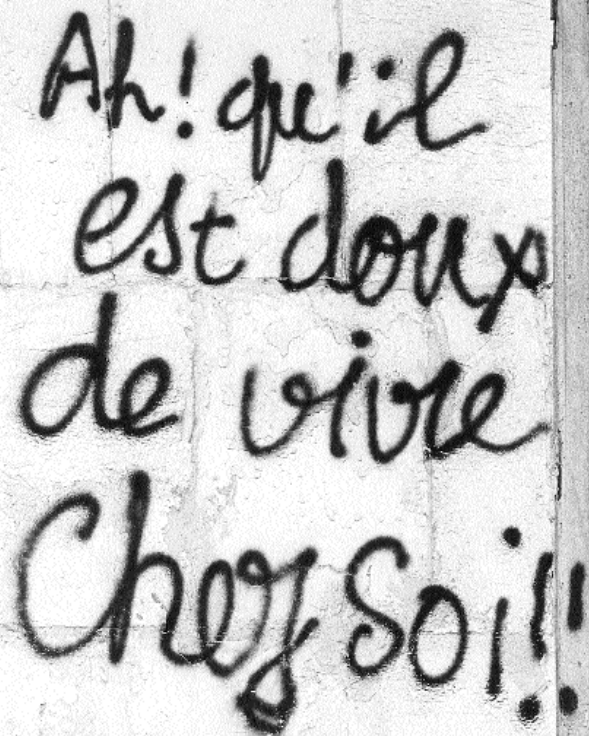 Ah! qu'il
est doux
de vivre
Chez soi!!